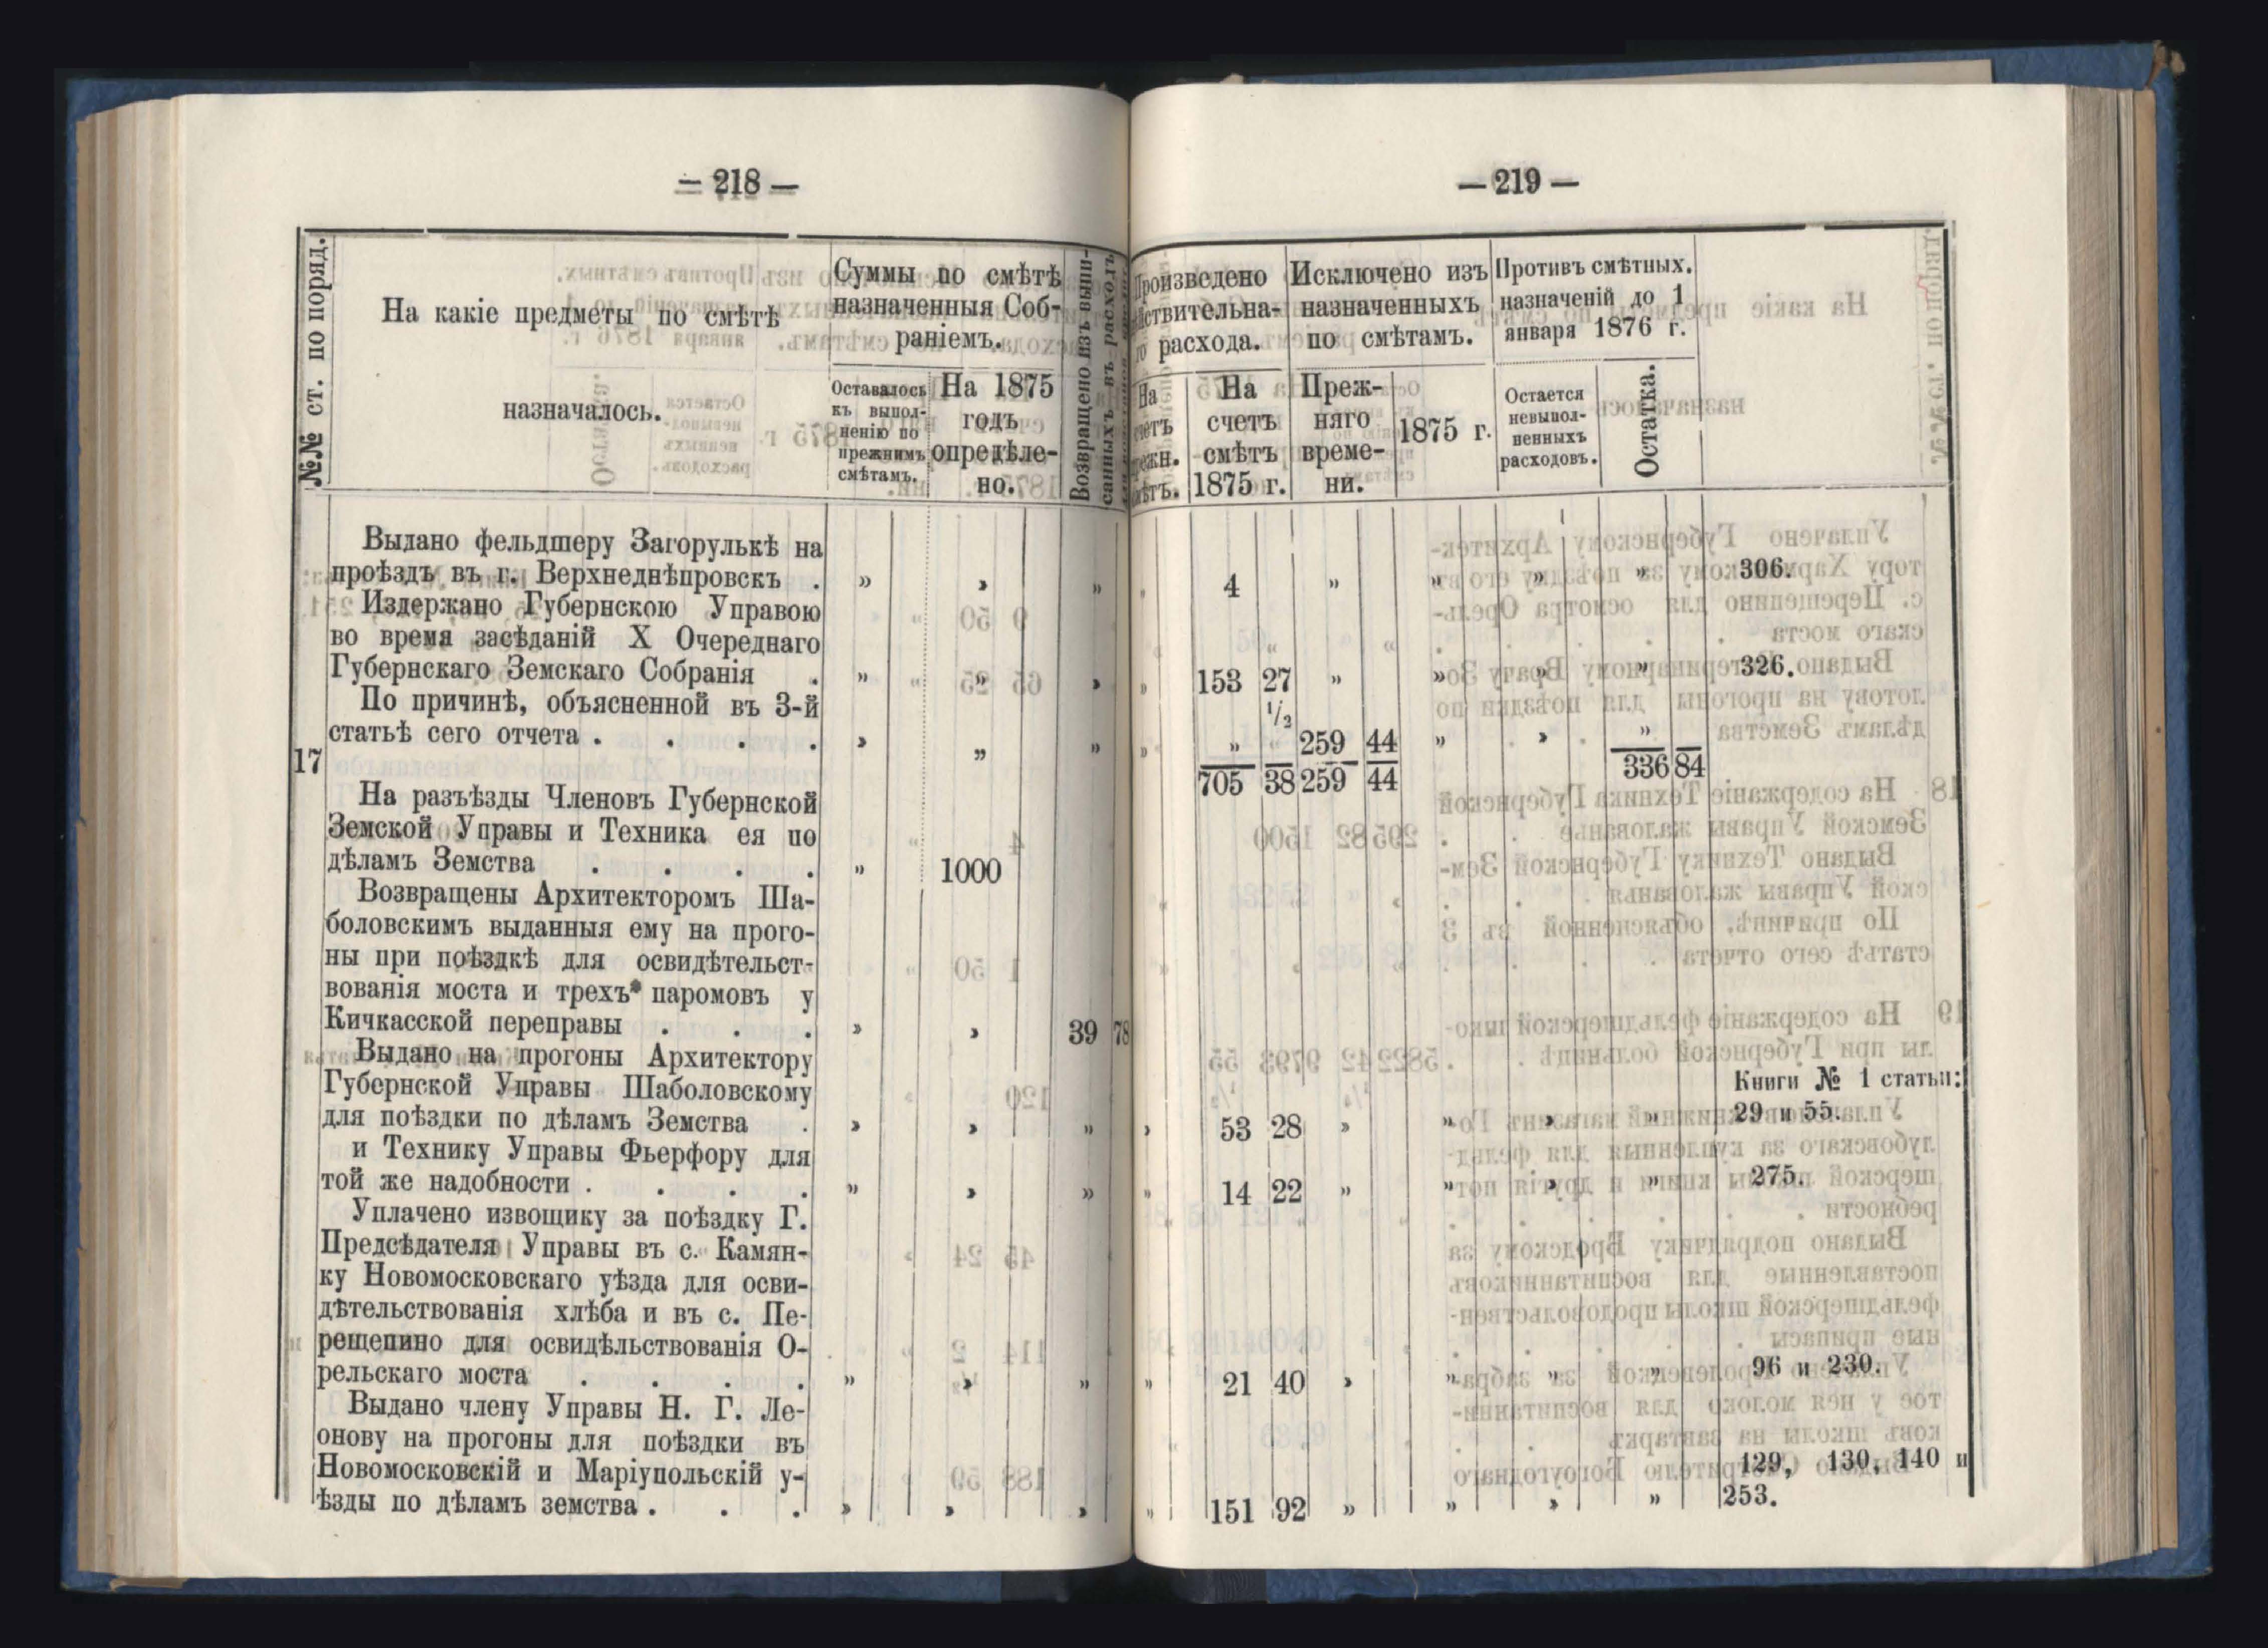 — 218 —
№№ ст. по поряд.
На какіе предметы по смѣтѣ
назначалось.
Суммы по смѣтѣ
назначенныя Соб-
раніемъ.
Оставалось
къ выпол-
ненію по
прежнимъ
смѣтамъ.
На 1875
годъ
опредѣле-
но.
Возвращено изъ выпи-
санныхъ въ расходъ
Выдано фельдшеру Загорулькѣ на
проѣздъ въ г. Верхнеднѣпровскъ . » » »
Издержано Губернскою Управою
во время засѣданій X Очереднаго
Губернскаго Земскаго Собранія . » » »
По причинѣ, объясненной въ 3-й
статьѣ сего отчета . . . . » » »
17
На разъѣзды Членовъ Губернской
Земской Управы и Техника ея по
дѣламъ Земства . . . . » 1000
Возвращены Архитекторомъ Ша-
боловскимъ выданныя ему на прого-
ны при поѣздкѣ для освидѣтельст-
вованія моста и трехъ паромовъ у
Кичкасской переправы . . . » » 39 78
Выдано на прогоны Архитектору
Губернской Управы Шаболовскому
для поѣздки по дѣламъ Земства . » » »
и Технику Управы Фьерфору для
той же надобности . . . . » » »
Уплачено извощику за поѣздку Г.
Предсѣдателя Управы въ с. Камян-
ку Новомосковскаго уѣзда для осви-
дѣтельствованія хлѣба и въ с. Пе-
рещепино для освидѣльствованія О-
рельскаго моста . . . . » » »
Выдано члену Управы Н. Г. Ле-
онову на прогоны для поѣздки въ
Новомосковскій и Маріупольскій у-
ѣзды по дѣламъ земства . . . » » »
— 219 —
Произведено
дѣйствительна-
го расхода.
На
счетъ
прежн.
смѣтъ.
На
счетъ
смѣтъ
1875 г.
Исключено изъ
назначенныхъ
по смѣтамъ.
Преж-
няго
време-
ни.
1875 г.
Противъ смѣтныхъ.
назначеній до 1
января 1876 г.
Остается
невыпол-
ненныхъ
расходовъ.
Остатка.
» 4 » » » » 306.
» 153 27 » » » » 326.
1/2
» » » 259 44 » » »
705 38 259 44 336 84
Книги № 1 статьи:
» 53 28 » » » » 29 и 55.
» 14 22 » » » » 275.
» 21 40 » » » » 96 и 230.
129, 130, 140 и
» 151 92 » » » » 253.